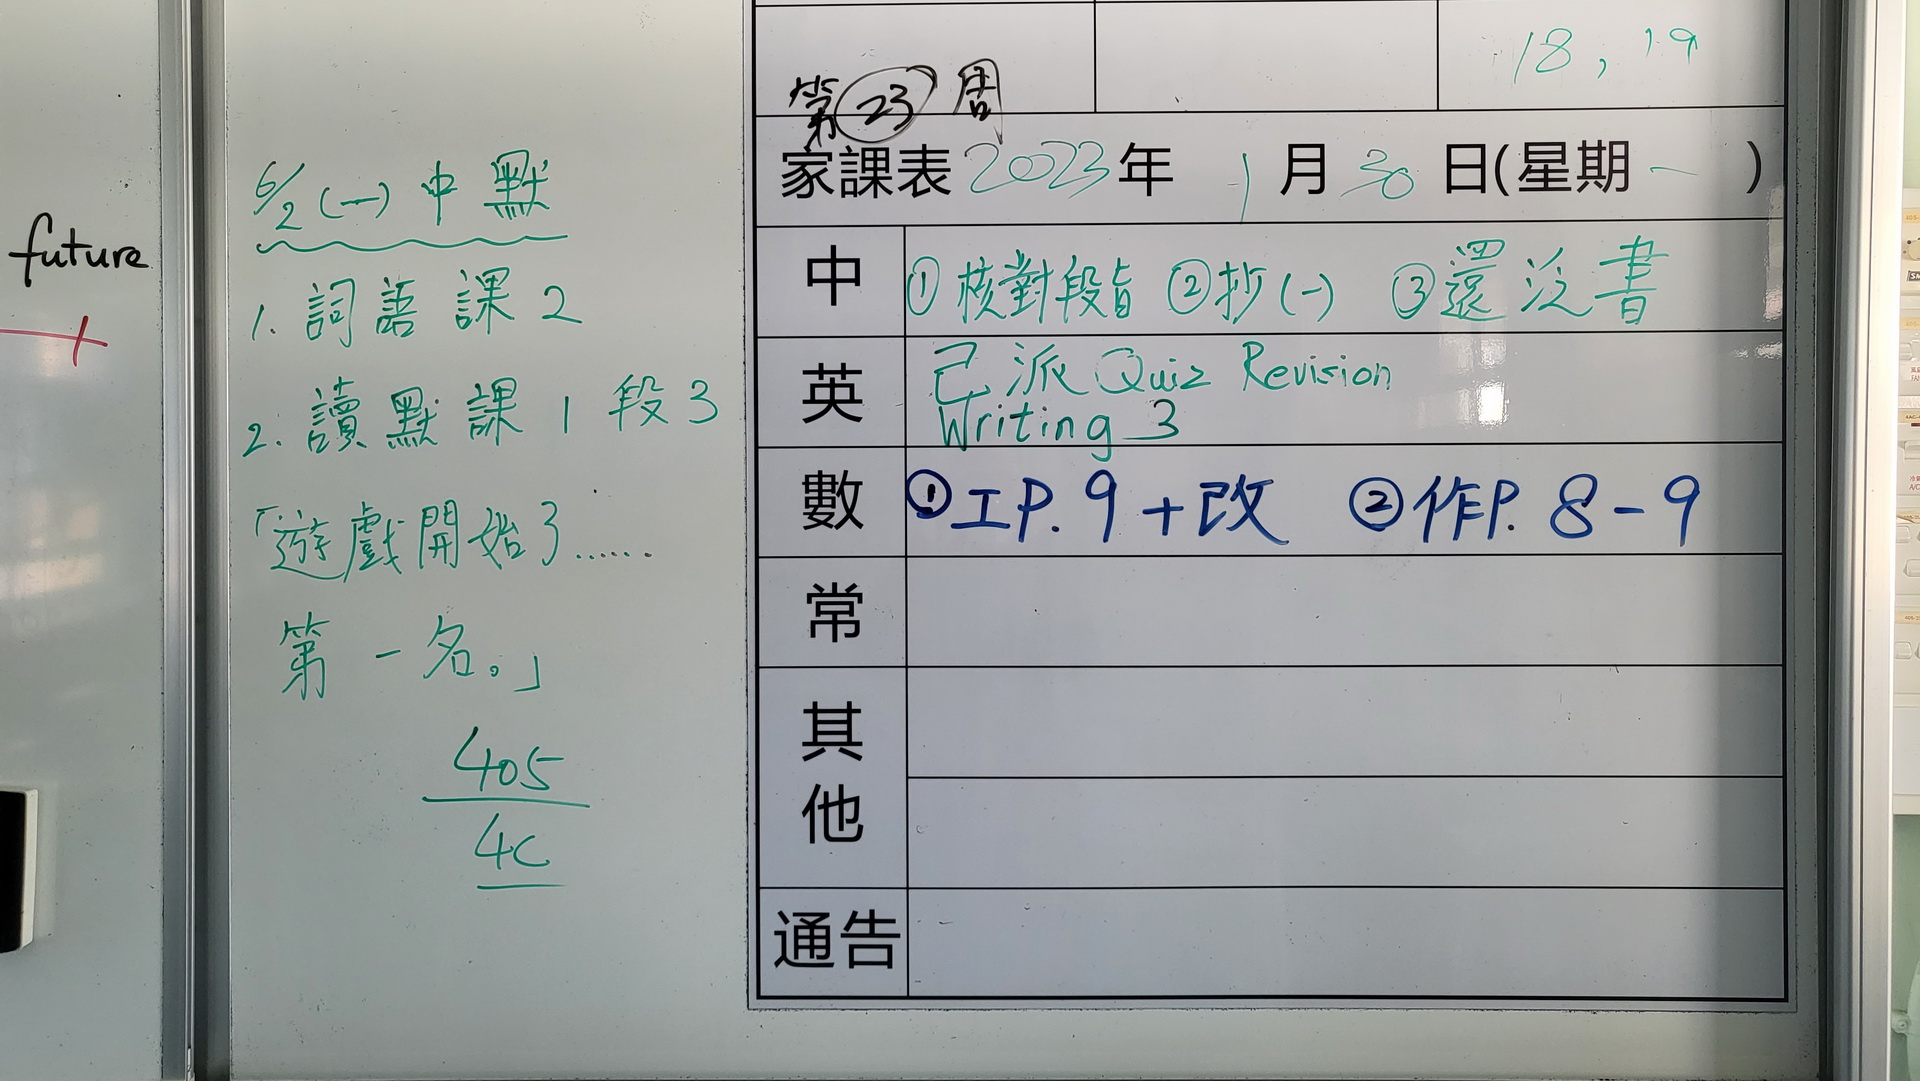 future
6/2 (一) 中默
1. 詞語課2
2. 讀默課1 段3
「遊戲開始了......
第一名。」
405
4C
18, 19
第 23 周
家課表 2023年 1月30日(星期一)
中 ①核對段旨 ②抄(一) ③還泛書
英 己派 Quiz Revision
Writing 3
數 ①工P.9+改 ②作P.8-9
常
其他
通告